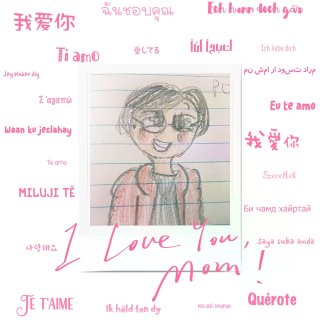 我爱你
ฉันชอบคุณ
Ech hunn dech gär
Ti amo
愛してる
Ich liebe dich
PC
Σ'αγαπώ
Eu te amo
Waan ku jeclahay
我愛你
Te amo
Szeretlek
MILUJI TĚ
Би чамд хайртай
사랑해요
I Love You,
Saya suka anda
Mom!
JE T'AIME
Ik hâld fan dy
Quérote